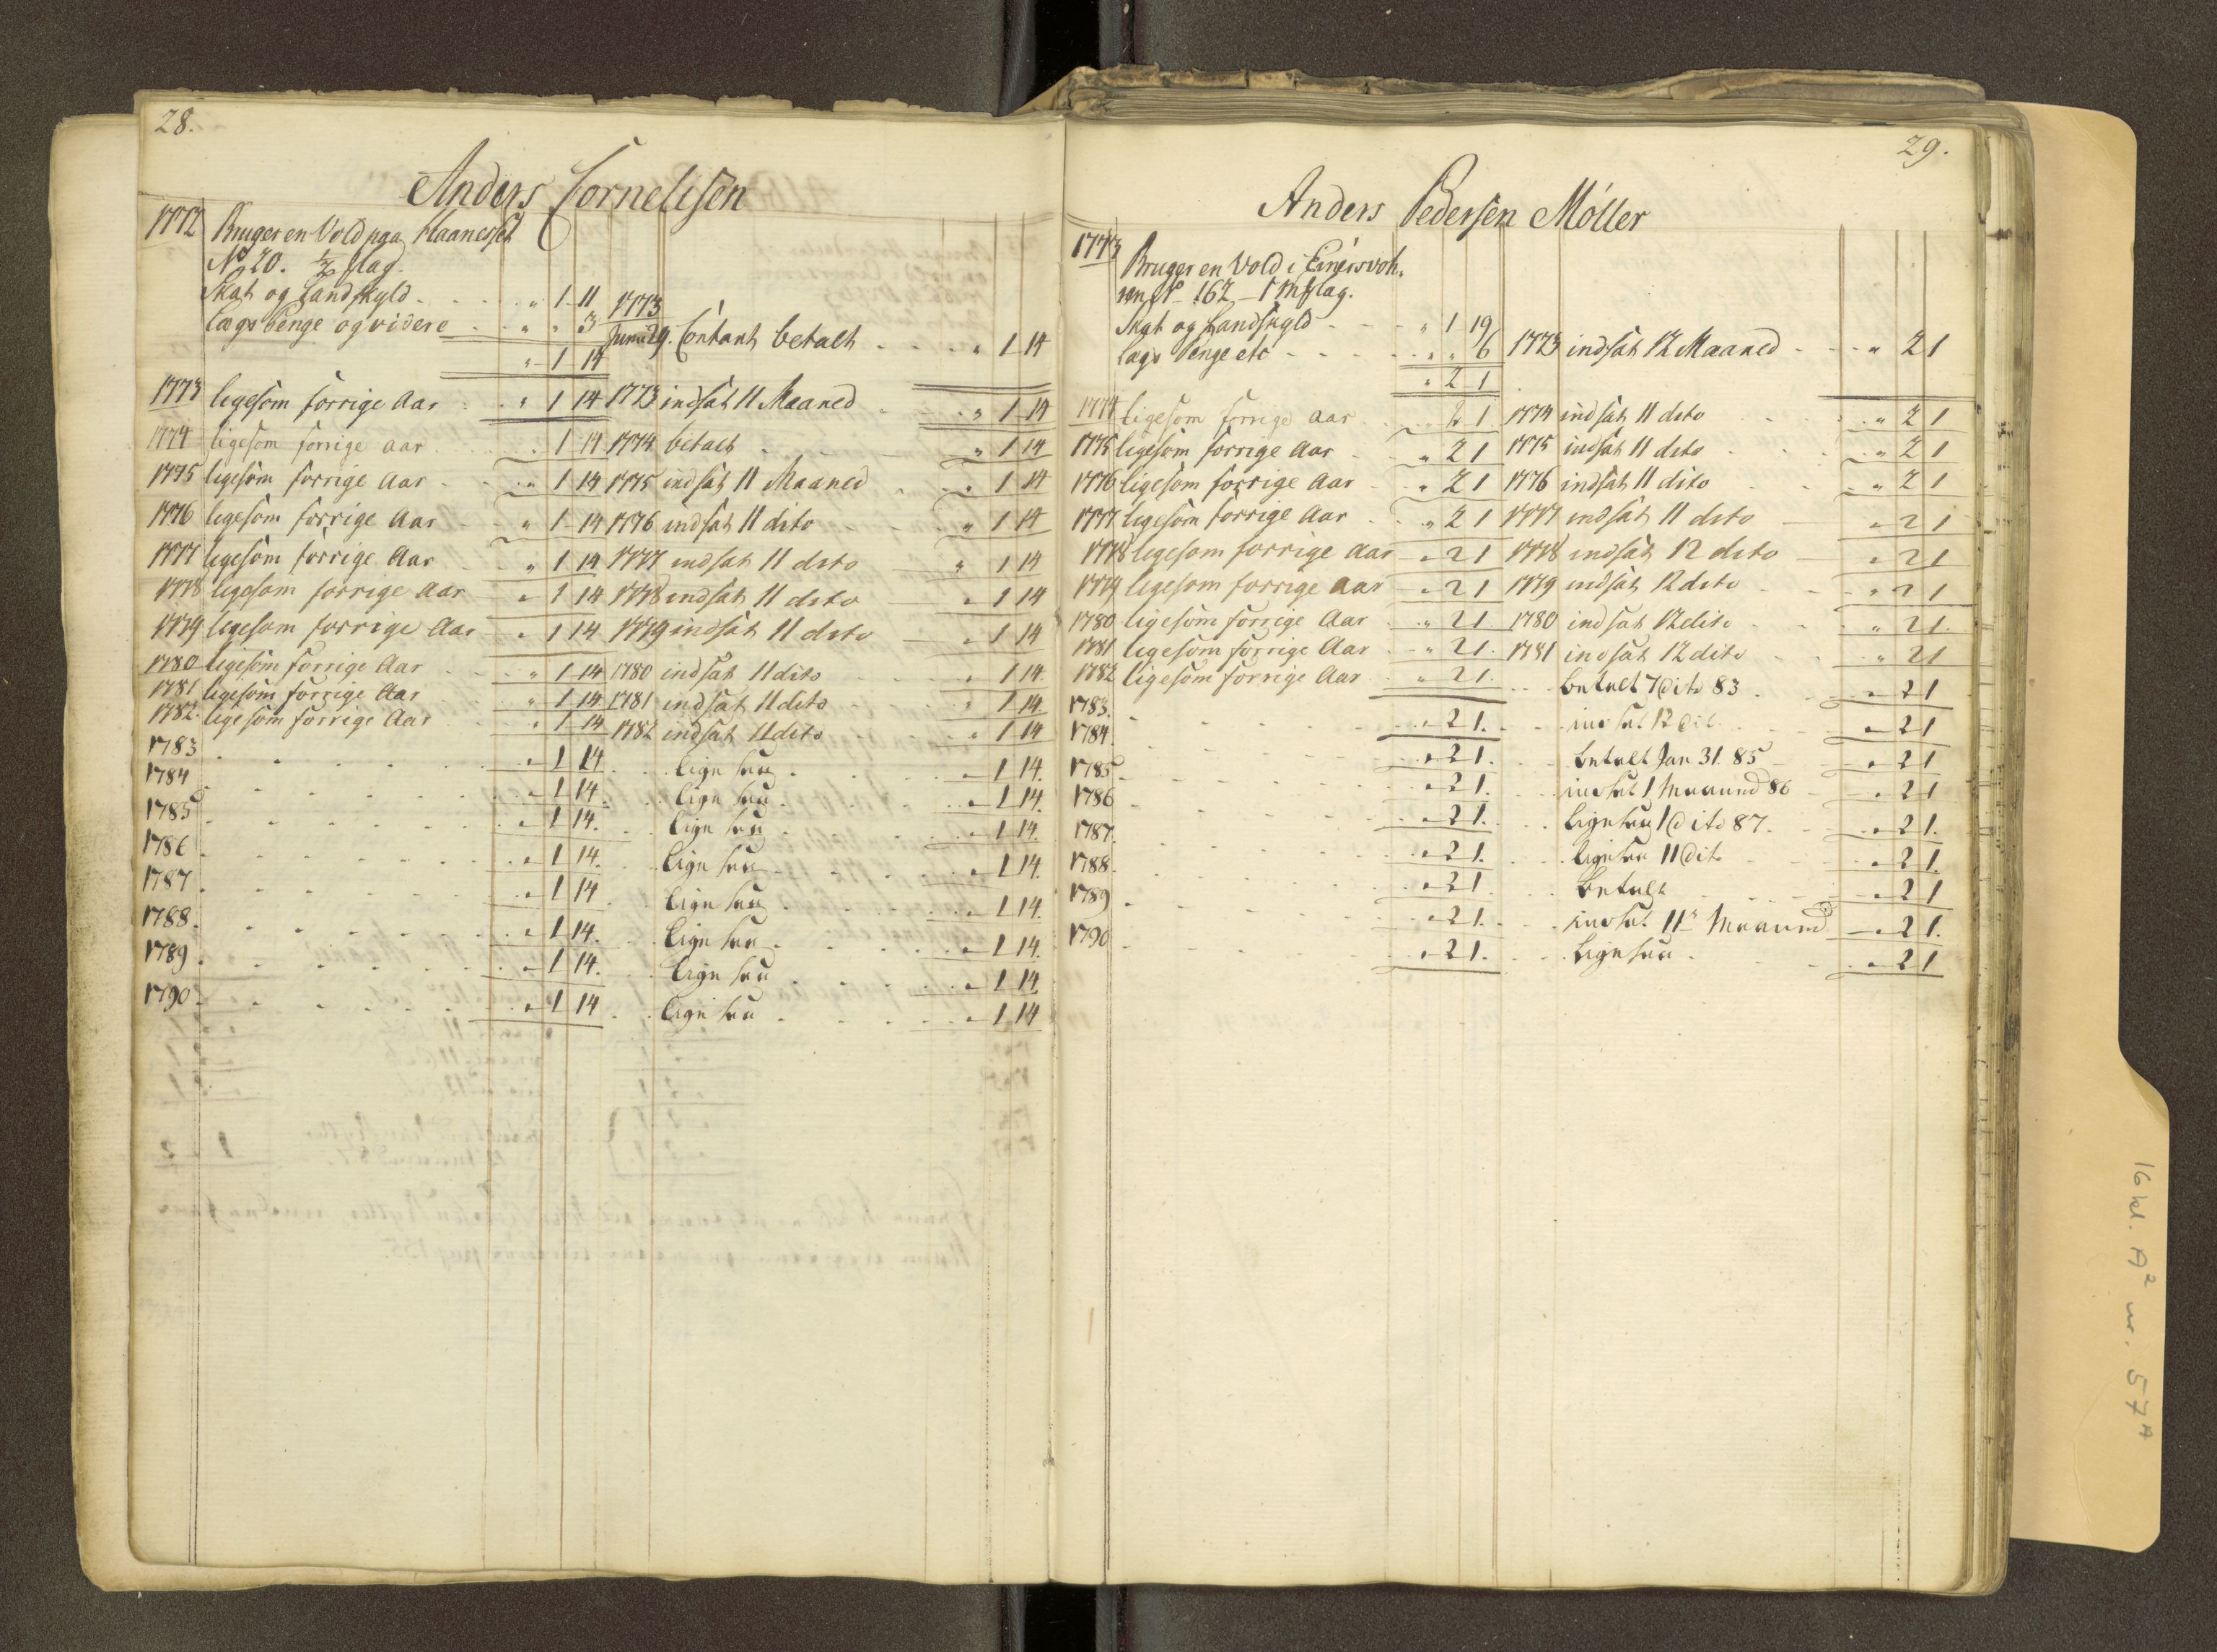 28.
Anders Cornelisen
1772 Bruger en Vold paa Haanesset
No 20. ½ flag.
Skat og Landskyld - - - " 1 11
Lægs Penge og videre - - " " 3
" 1 14
1773
Junii 29. Contant betalt - - - " 1 14
1773 ligesom forrige Aar - " 1 14 1773 indsat 11 Maaned - - " 1 14
1774 ligesom forrige aar - " 1 14 1774 betalt - - " 1 14
1775 ligesom forrige Aar - " 1 14 1775 indsat 11 Maaned - " 1 14
1776 ligesom forrige Aar - " 1 14 1776 indsat 11 dito - " 1 14
1777 ligesom forrige Aar - " 1 14 1777 indsat 11 dito - " 1 14
1778 ligesom forrige Aar - " 1 14 1778 indsat 11 dito - " 1 14
1779 ligesom forrige Aar - " 1 14 1779 indsat 11 dito - " 1 14
1780 ligesom forrige Aar - " 1 14 1780 indsat 11 dito - " 1 14
1781 ligesom forrige Aar - " 1 14 1781 indsat 11 dito - " 1 14
1782 ligesom forrige Aar - " 1 14 1782 indsat 11 dito - " 1 14
1783 - - - " 1 14 - ligesaa - - " 1 14.
1784 - - - " 1 14. - ligesaa - - " 1 14.
1785 - - - " 1 14. - ligesaa - - " 1 14.
1786 - - - " 1 14. - ligesaa - - " 1 14.
1787 - - - " 1 14 - ligesaa - - " 1 14.
1788 - - - " 1 14. - ligesaa - - " 1 14.
1789 - - - " 1 14. - ligesaa - - " 1 14.
1790 - - - " 1 14 - ligesaa - - " 1 14
29.
Anders Pedersen Möller
1773 Bruger en Vold i Einersvoh.
No 162 - 1 Mflag.
Skat og Landskyld - - - " 1 19
Lægs Penge etc - - - " " 6 1773 indsat 12 Maaned - - " 2 1
" 2 1
1774 ligesom forrige aar - 2 1 1774 indsat 11 dito - " 2 1
1775 ligesom forrige Aar - " 2 1 1775 indsat 11 dito - " 2 1
1776 ligesom forrige Aar - " 2 1 1776 indsat 11 dito - " 2 1
1777 ligesom forrige Aar - " 2 1 1777 indsat 11 dito - " 2 1
1778 ligesom forrige Aar - " 2 1 1778 indsat 12 dito - " 2 1
1779 ligesom forrige Aar - " 2 1 1779 indsat 12 dito - " 2 1
1780 ligesom forrige Aar - " 2 1. 1780 indsat 12 dito - " 2 1.
1781 ligesom forrige Aar - " 2 1. 1781 indsat 12 dito - " 2 1
1782 ligesom forrige Aar - " 2 1. - betalt 7 dito 83 - " 2 1
1783. - - - " 2 1. - indsat 12 dit - " 2 1
1784. - - - " 2 1. - betalt Jan 31. 85 - " 2 1
1785 - - - " 2 1. - indsat 1 Maaned 86 - " 2 1
1786 - - - " 2 1. - ligesaa 1 dito 87. - " 2 1.
1787. - - - " 2 1. - ligesaa 11 dito - " 2 1.
1788. - - - " 2 1 - betalt - " 2 1
1789 - - - " 2 1. - indsat 11 Maaned - " 2 1.
1790 - - - " 2 1. - ligesaa - " 2 1
16 kl. A² nr. 57A